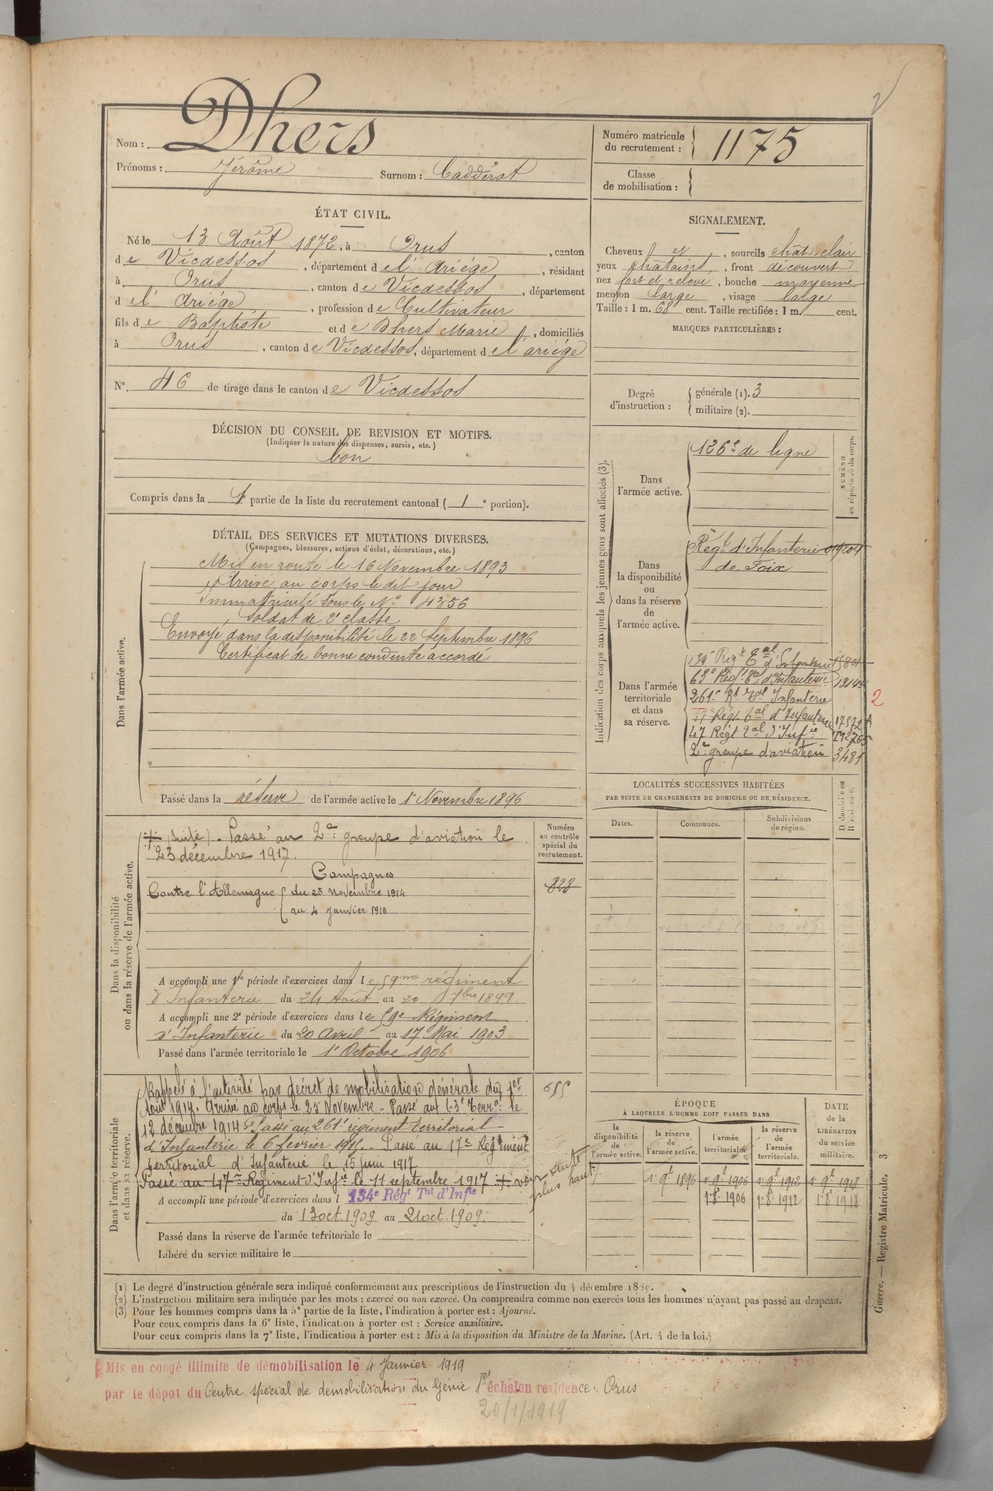 Nom : Dhers
Prénoms : Jérôme Surnom : Cadderot
Numéro matricule du recrutement : 1175
Classe de mobilisation :
ÉTAT CIVIL.
Né le 13 Août 1872, à Orus, canton
de Vicdessos, département de l'Ariége, résidant
à Orus, canton de Vicdessos, département
d el' Ariége, profession de Cultivateur
fils de Baptiste et de Dhers Marie, domiciliés
à Orus, canton de Vicdessos, département de l'ariége
N°. 46 de tirage dans le canton de Vicdessos
SIGNALEMENT.
Cheveux et, sourcils chât-clair
yeux chatains, front découvert
nez fort et relevé, bouche moyenne
menton large, visage large
Taille : 1 m. 68 cent. Taille rectifiée : 1 m. cent.
MARQUES PARTICULIÈRES :
Degré d'instruction : générale (1). 3
militaire (2).
DÉCISION DU CONSEIL DE REVISION ET MOTIFS.
(Indiquer la nature des dispenses, sursis, etc.)
bon
Compris dans la 1 partie de la liste du recrutement cantonal ( 1 e portion).
DÉTAIL DES SERVICES ET MUTATIONS DIVERSES.
(Campagnes, blessures, actions d'éclat, décorations, etc.)
Dans l'armée active.
Mis en route le 16 Novembre 1893
Arrivé au corps le dit jour
Immatriculé sous le N° 4356
Soldat de 2e classe
Envoyé dans la disponibilité le 22 Septembre 1896
Certificat de bonne conduite accordé
Passé dans la réserve de l'armée active le 1 Novembre 1896
Indication des corps auxquels les jeunes gens sont affectés (3).
NUMÉRO au répertoire du corps.
Dans l'armée active.
126e de ligne
Dans la disponibilité ou dans la réserve de l'armée active.
Régt d'Infanterie
de Foix
Dans l'armée territoriale et dans sa réserve.
134e Régt Eal d'Infanterie
63e Régt Eal d'Infanterie
261e Rt Tal Infanterie
17e Régt Eal d'Infanterie 17572
47 Régt Eal d'Infie
2e groupe d'aviation 3481
2
LOCALITÉS SUCCESSIVES HABITÉES
PAR SUITE DE CHANGEMENTS DE DOMICILE OU DE RÉSIDENCE.
Dates. Communes. Subdivisions de région. D domicile ou R résidence.
Dans la disponibilité ou dans la réserve de l'armée active.
Numéro au contrôle spécial du recrutement.
(Suite). Passé au 2e groupe d'aviation le
23 décembre 1917.
Campagnes
Contre l'Allemagne du 25 Novembre 1914
au 4 janvier 1919
A accompli une 1re période d'exercices dans le 59me régiment
d'Infanterie du 24 Août au 20 7bre 1899.
A accompli une 2e période d'exercices dans le 59e Régiment
d'Infanterie du 20 Avril au 17 Mai 1903
Passé dans l'armée territoriale le 1er Octobre 1906
Dans l'armée territoriale et dans sa réserve.
Rappelé à l'activité par décret de mobilisation générale du 1er
Août 1914. Arrivé au corps le 25 Novembre - Passé au 63e Terral le
12 décembre 1914. Passé au 261e régiment territorial
d'Infanterie le 6 février 1915. Passé au 17e Régiment
territorial d'Infanterie le 15 juin 1917
Passé au 47e Régiment d'Infie le 11 septembre 1917 voir suite plus haut
A accompli une période d'exercices dans l 134e Régt Tal d'Infie
du 13 oct 1909 au 21 oct. 1909.
Passé dans la réserve de l'armée territoriale le
Libéré du service militaire le
ÉPOQUE
À LAQUELLE L'HOMME DOIT PASSER DANS
la disponibilité de l'armée active. la réserve de l'armée active. l'armée territoriale. la réserve de l'armée territoriale. DATE de la LIBÉRATION du service militaire.
1 9t 1896 1 9t 1906 1 9t 1912 1 9t 1918
1 8t 1906 1 8t 1912 1 8t 1918
(1) Le degré d'instruction générale sera indiqué conformément aux prescriptions de l'instruction du 4 décembre 18
(2) L'instruction militaire sera indiquée par les mots : exercé ou non exercé. On comprendra comme non exercés tous les hommes n'ayant pas passé au drapeau.
(3) Pour les hommes compris dans la 5e partie de la liste, l'indication à porter est : Ajourné.
Pour ceux compris dans la 6e liste, l'indication à porter est : Service auxiliaire.
Pour ceux compris dans la 7e liste, l'indication à porter est : Mis à la disposition du Ministre de la Marine. (Art. 4 de la loi.)
Guerre. — Registre Matricule. 3
Mis en congé illimité de démobilisation le 4 Janvier 1919
par le dépôt du Centre spécial de démobilisation du Génie 1er échelon residence. Orus
20/1/1919